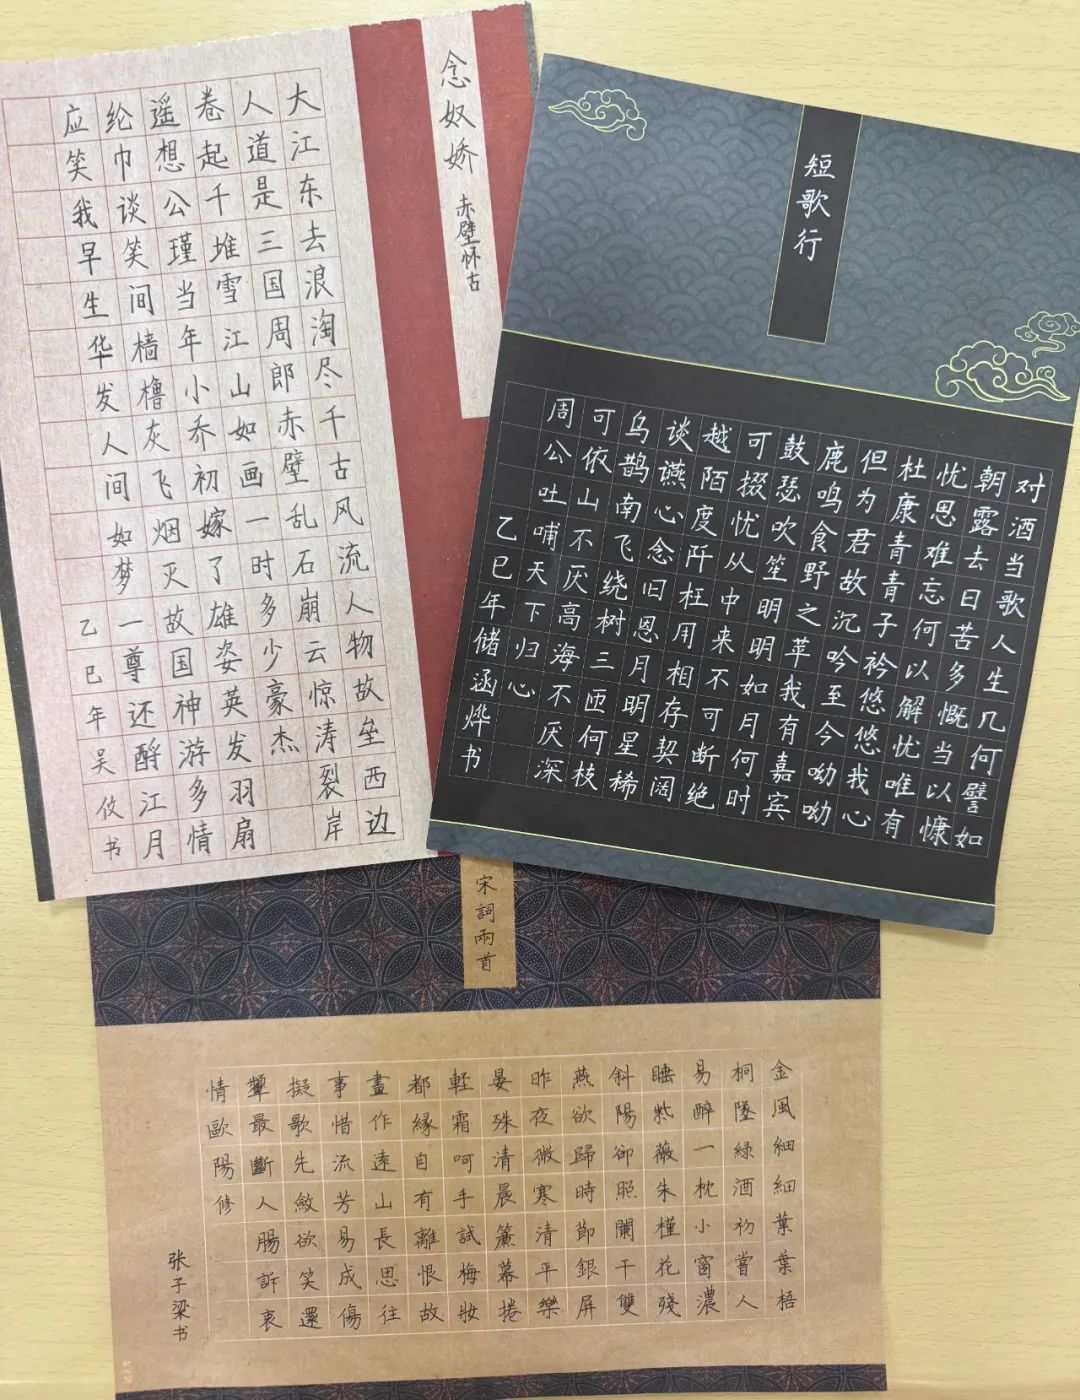 念奴娇
赤壁怀古
大江东去浪淘尽千古风流人物故垒西边
人道是三国周郎赤壁乱石崩云惊涛裂岸
卷起千堆雪江山如画一时多少豪杰
遥想公瑾当年小乔初嫁了雄姿英发羽扇
纶巾谈笑间樯橹灰飞烟灭故国神游多情
应笑我早生华发人间如梦一尊还酹江月
乙巳年吴攸书
短歌行
对酒当歌人生几何譬如
朝露去日苦多慨当以慷
忧思难忘何以解忧唯有
杜康青青子衿悠悠我心
但为君故沉吟至今呦呦
鹿鸣食野之苹我有嘉宾
鼓瑟吹笙明明如月何时
可掇忧从中来不可断绝
越陌度阡枉用相存契阔
谈䜩心念旧恩月明星稀
乌鹊南飞绕树三匝何枝
可依山不厌高海不厌深
周公吐哺天下归心
乙巳年储涵烨书
宋詞兩首
金風細細葉葉梧
桐墜綠酒初嘗人
易醉一枕小窗濃
睡紫薇朱槿花殘
斜陽卻照闌干雙
燕欲歸時節銀屏
昨夜微寒清平樂
晏殊清晨簾幕捲
輕霜呵手試梅妝
都緣自有離恨故
畫作遠山長思往
事惜流芳易成傷
擬歌先斂欲笑還
顰最斷人腸訴衷
情歐陽修
张子梁书